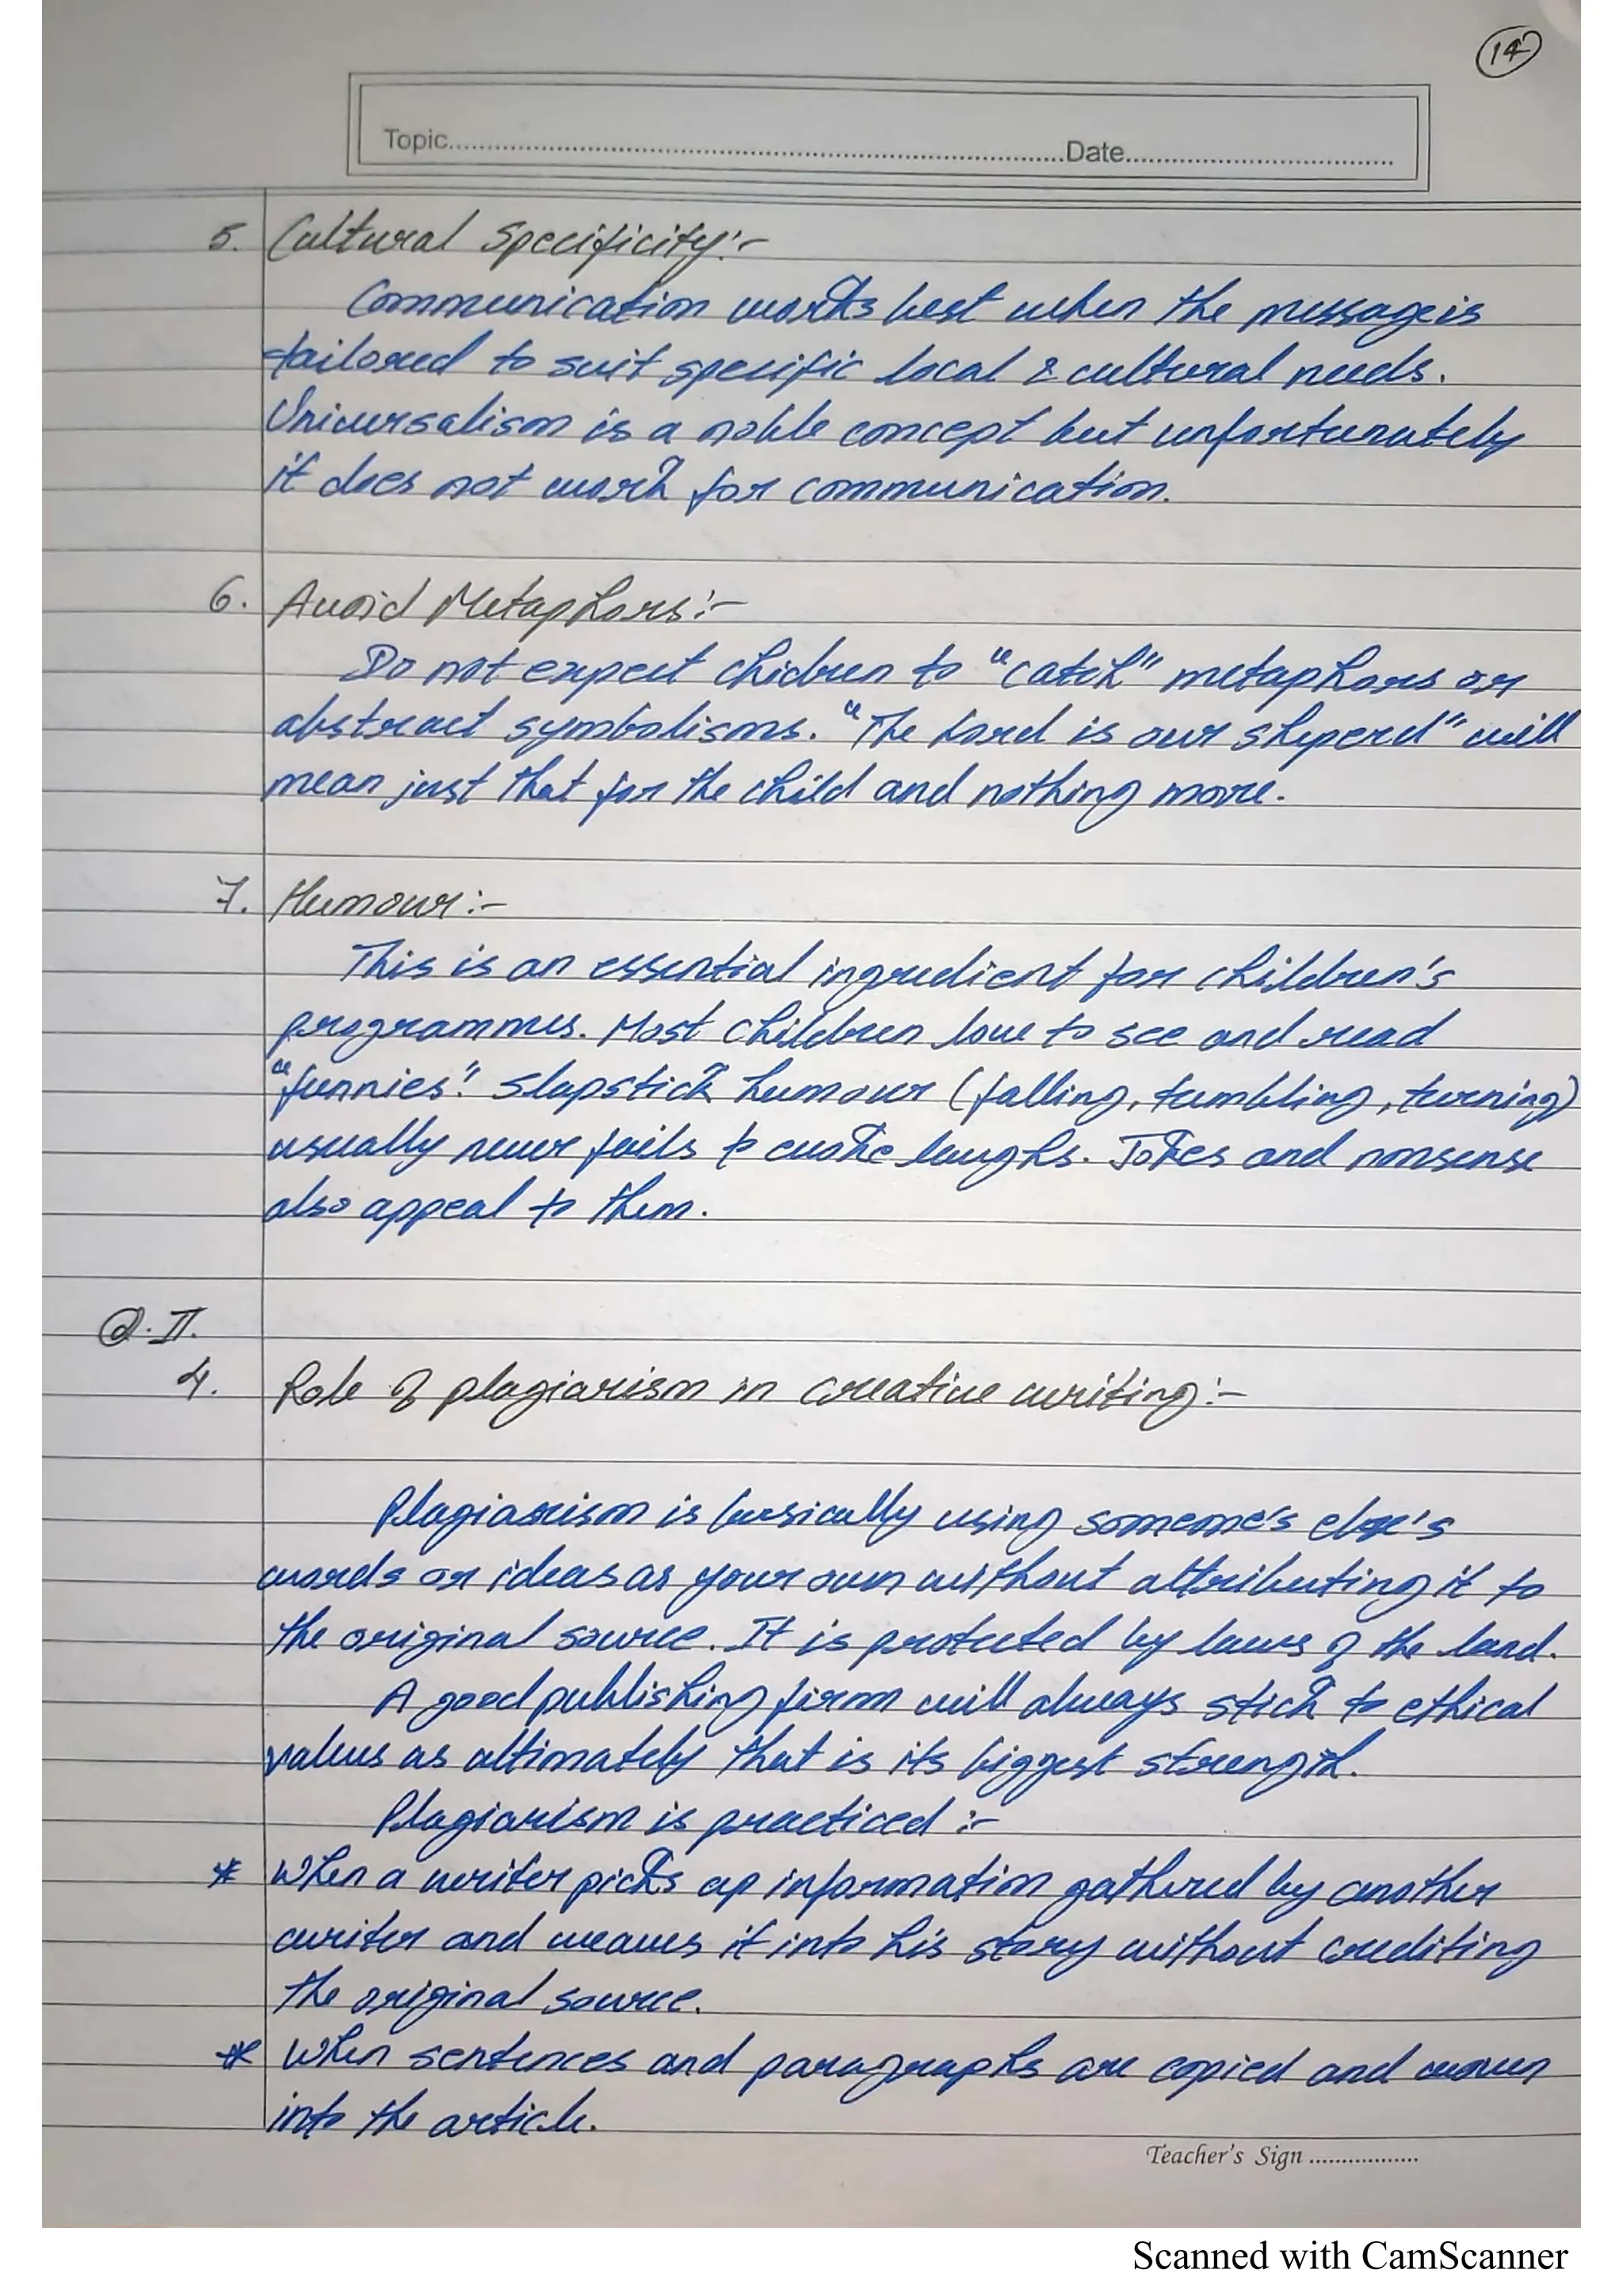 14
Topic..........Date..........
5. Cultural Specificity:-
Communication works best when the message is
tailored to suit specific local & cultural needs.
Universalism is a noble concept but unfortunately
it does not work for communication.
6. Avoid Metaphors:-
Do not expect chidren to "catch" metaphors or
abstract symbolisms. "The Lord is our sheperd" will
mean just that for the child and nothing more.
7. Humour:-
This is an essential ingredient for children's
programmes. Most children love to see and read
"funnies". Slapstick humour (falling, tumbling, turning)
usually never fails to evoke laughs. Jokes and nonsense
also appeal to them.
Q.II.
4. Role of plagiarism in creative writing:-
Plagiarism is basically using someone's else's
words or ideas as your own without attributing it to
the original source. It is protected by laws of the land.
A good publishing firm will always stick to ethical
values as ultimately that is its biggest strength.
Plagiarism is practiced :-
* When a writer picks up information gathered by another
writer and weaves it into his story without crediting
the original source.
* When sentences and paragraphs are copied and woven
into the article.
Teacher's Sign ..................
Scanned with CamScanner